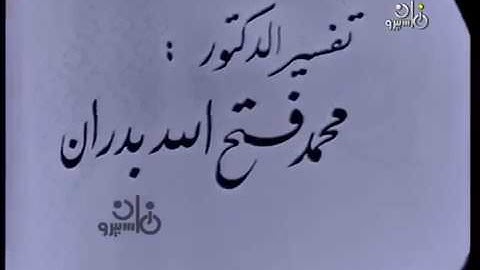 تفسير الدكتور :
محمد فتح الله بدران
ماسبيرو زمان
ماسبيرو زمان